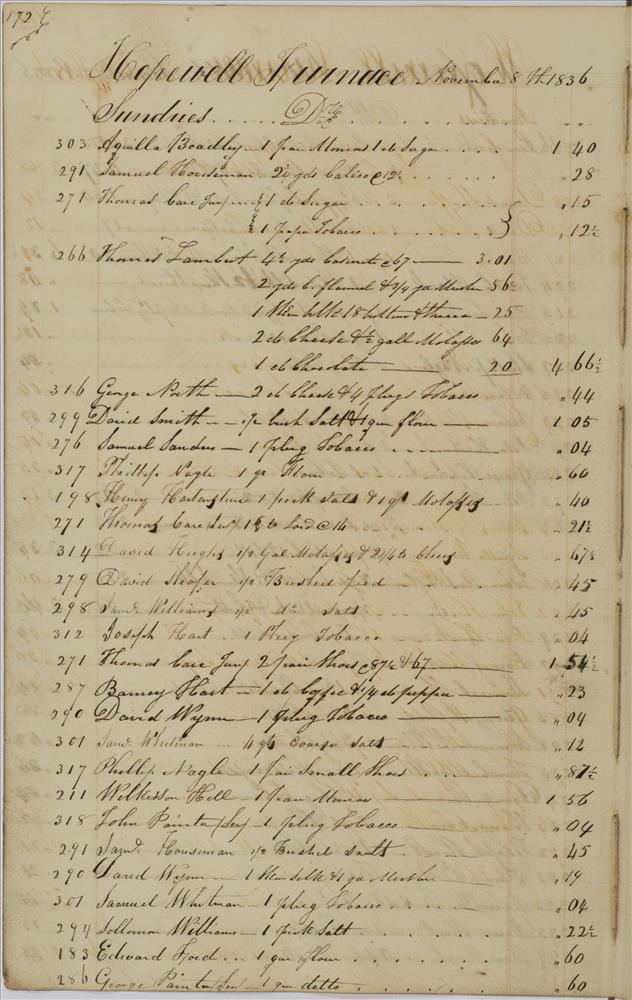 172
Hopewell Furnace November 8th 1836
Sundries . . . . . Drs . . . . . . . . „ „
303 Aquilla Boadley — 1 pair Monroes 1 lb Sugar . . . . 1 40
291 Samuel Houseman 2¼ yds Calico @ 12½ . . . . . „ 28
271 Thomas Care Junr — 1 lb Sugar . . . . . . . „ 15
1 paper Tobacco . . . . . . . „ 12½
266 Thomas Lambert 4½ yds Casinett @ 67 — 3.01
2 yds C. flannel & 3/4 yd Muslin 56½
1 Skein Silk 18 buttons & thread — 25
2 lb Cheese & ½ gall Molasses 64
1 lb Chocolate — 20 4 66½
316 George North — 2 lb Cheese & 4 plugs Tobacco „ 44
299 David Smith — 1/2 bush Salt & 1 qur flour — 1 05
276 Samuel Sanders — 1 plug Tobacco . . — „ 04
317 Phillip Nagle 1 qr Flour — . . . . . „ 60
198 Henry 1 peck Salt & 1 qt Molasses „ 40
271 Thomas Care Junr 1½ lb Lard @ 14 . . . . „ 21½
314 David Hughs 1/2 Gal Molasses & 2 1/4 lb Cheese „ 67½
279 David Shafer 1/2 Bushel feed — . . . „ 45
298 Saml Williams 1/2 do Salt . . . . „ 45
312 Joseph Hart . . 1 Plug Tobacco — . . . „ 04
271 Thomas Care Junr 2 pair Shoes @ 87½ & 67 — 1 54½
287 Barney Hart — 1 lb Coffee & 1/4 lb pepper — „ 23
290 David Wynn — 1 plug Tobacco — „ 04
301 Saml Whitman . . . 4 qts Coarse Salt — . . „ 12
317 Phillip Nagle — 1 pair Small Shoes . . . „ 87½
211 Wilkisson Hill — 1 pair Monroes — 1 56
318 John Painter (Sen) — 1 plug Tobacco — „ 04
291 Saml Houseman 1/2 Bushel Salt . . . . . . „ 45
290 David Wynn — 1 Skein Silk & 1 yd Muslin — „ 19
301 Samuel Whitman — 1 plug Tobacco . . . . „ 04
294 Sollomon Williams — 1 peck Salt . . . . . . „ 22½
183 Edward Ford . . . 1 qur flour . . . . . . . „ 60
286 George Painter (Sen) — 1 qur detto . . . . . . „ 60